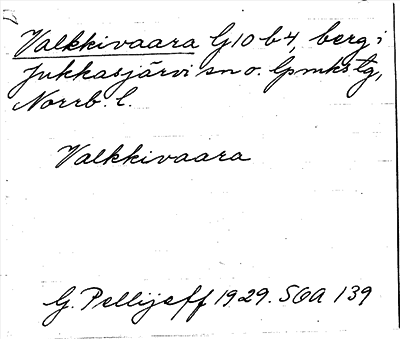 Valkkivaara G10 b 4, berg i
Jukkasjärvi sn o. lpmkstg,
Norrb. l.
Valkkivaara
G. Pellijeff 1929. SOA 139